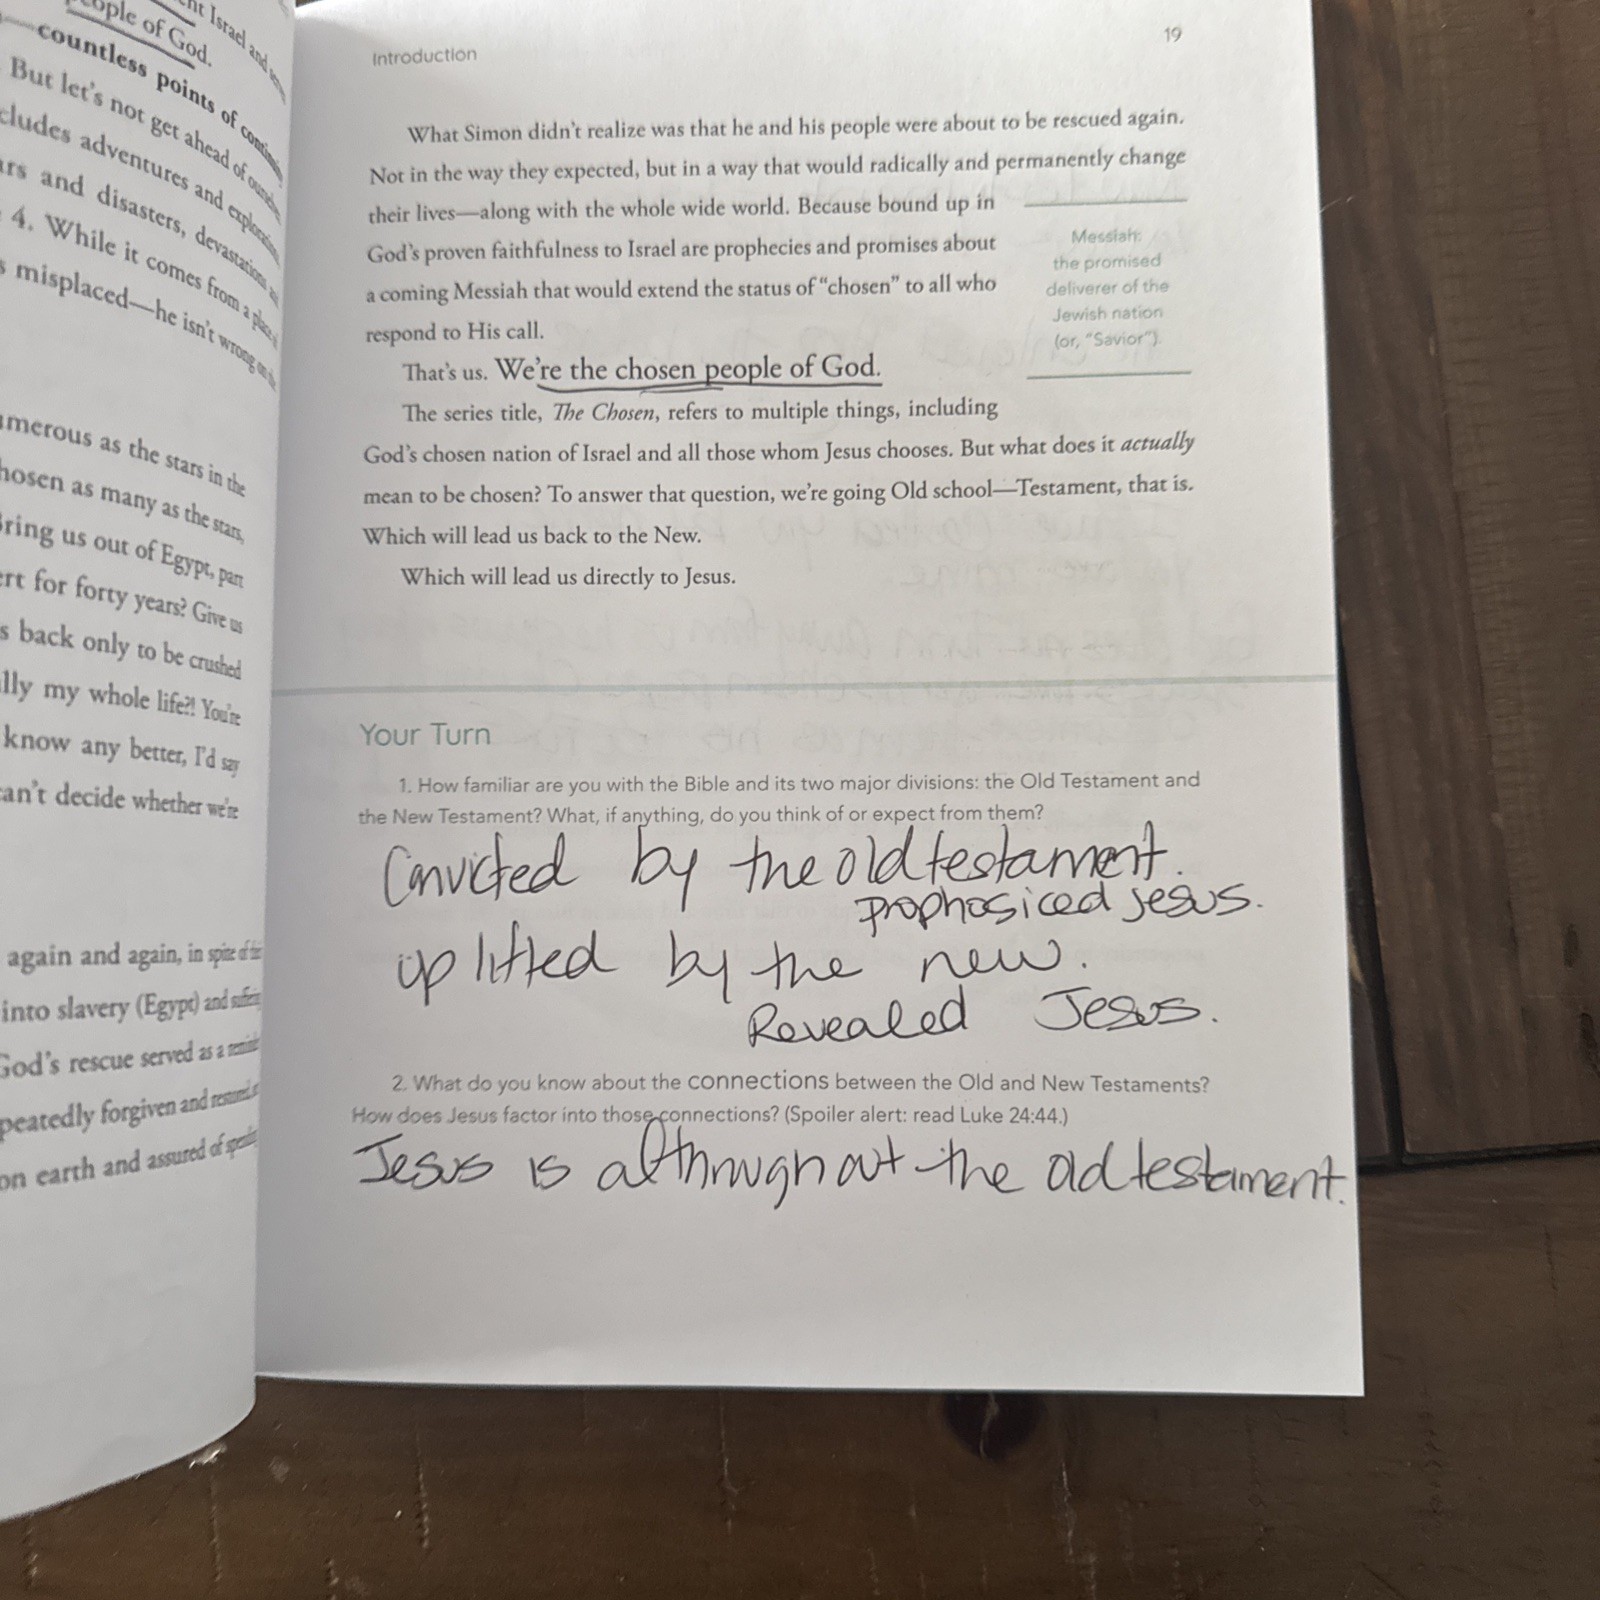 nt Israel and
people of God.
countless points of
But let's not get ahead of
cludes adventures and
rs and disasters, devastations
4. While it comes from a place of
s misplaced—he isn't wrong on
merous as the stars in the
hosen as many as the stars,
Bring us out of Egypt, part
ert for forty years? Give us
s back only to be crushed
lly my whole life?! You're
know any better, I'd say
can't decide whether we're
again and again, in spite of
into slavery (Egypt) and
God's rescue served as a
peatedly forgiven and
on earth and assured of
Introduction
19
What Simon didn't realize was that he and his people were about to be rescued again.
Not in the way they expected, but in a way that would radically and permanently change
their lives—along with the whole wide world. Because bound up in
God's proven faithfulness to Israel are prophecies and promises about
a coming Messiah that would extend the status of "chosen" to all who
respond to His call.
Messiah:
the promised
deliverer of the
Jewish nation
(or, "Savior").
That's us. We're the chosen people of God.
The series title, The Chosen, refers to multiple things, including
God's chosen nation of Israel and all those whom Jesus chooses. But what does it actually
mean to be chosen? To answer that question, we're going Old school—Testament, that is.
Which will lead us back to the New.
Which will lead us directly to Jesus.
Your Turn
1. How familiar are you with the Bible and its two major divisions: the Old Testament and
the New Testament? What, if anything, do you think of or expect from them?
Convicted by the old testament.
prophosiced Jesus.
uplifted by the new.
Revealed Jesus.
2. What do you know about the connections between the Old and New Testaments?
How does Jesus factor into those connections? (Spoiler alert: read Luke 24:44.)
Jesus is al throughout the old testament.